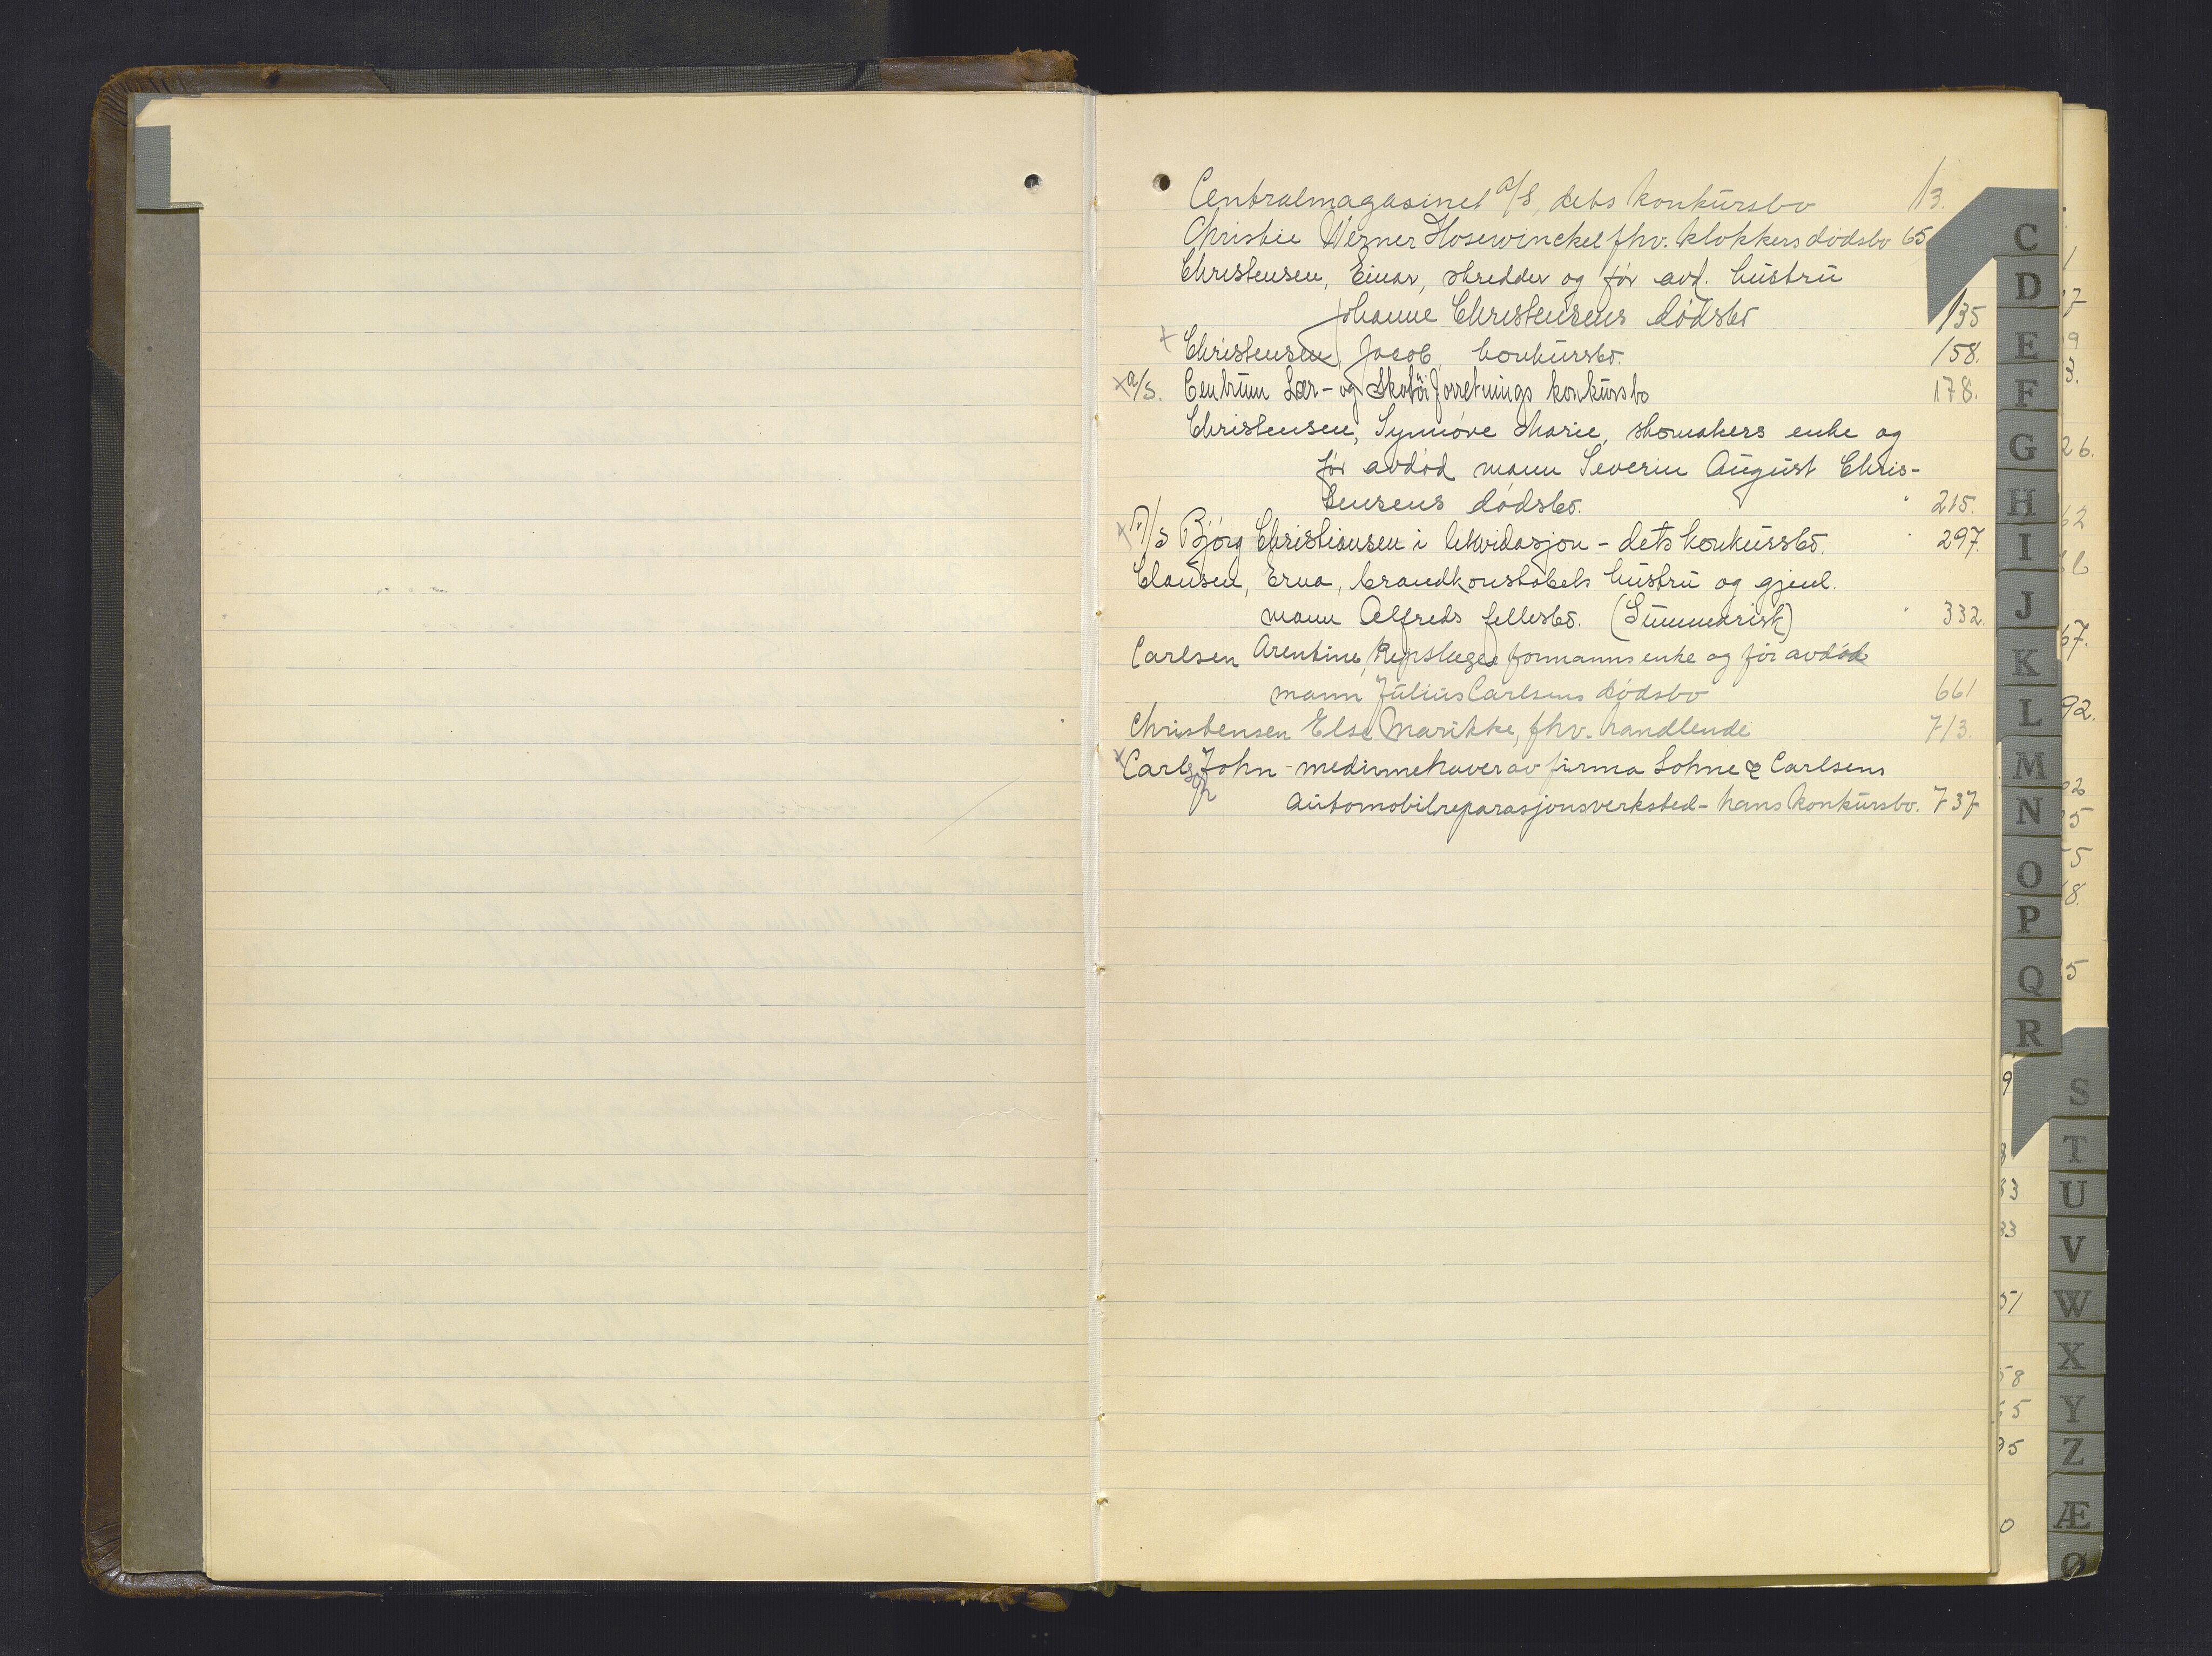 Centralmagasinet A/S, dets konkursbo 113.
Christie Werner Hosewinckel fhv. klokkers dødsbo 65
Christensen, Einar, skredder og før avd. hustru
Johanne Christensens dødsbo 135
x Christensen, Jacob, konkursbo. 158.
x A/S. Centrum Lær- og Skotöi forretnings konkursbo 178.
Christensen, Synnøve Marie, skomakers enke og
før avdød mann Severin August Chris-
tensens dødsbo. 215.
x A/S Björg Christiansen i likvidasjon - dets konkursbo. 297.
Clausen, Erna, brandkonstabels hustru og gjenl.
mann Alfreds fellesbo. (Summarisk) 332.
Carlsen Arentine, Repslager formanns enke og før avdød
mann Julius Carlsens dødsbo 661
Christensen Else Marikke, fhv. handlende 713.
x Carlsen John - medinnehaver av firma Lohne & Carlsens
automobilreparasjonsverksted - hans konkursbo. 737
C
D
E
F
G
H
I
J
K
L
M
N
O
P
Q
R
S
T
U
V
W
X
Y
Z
Æ
Ø